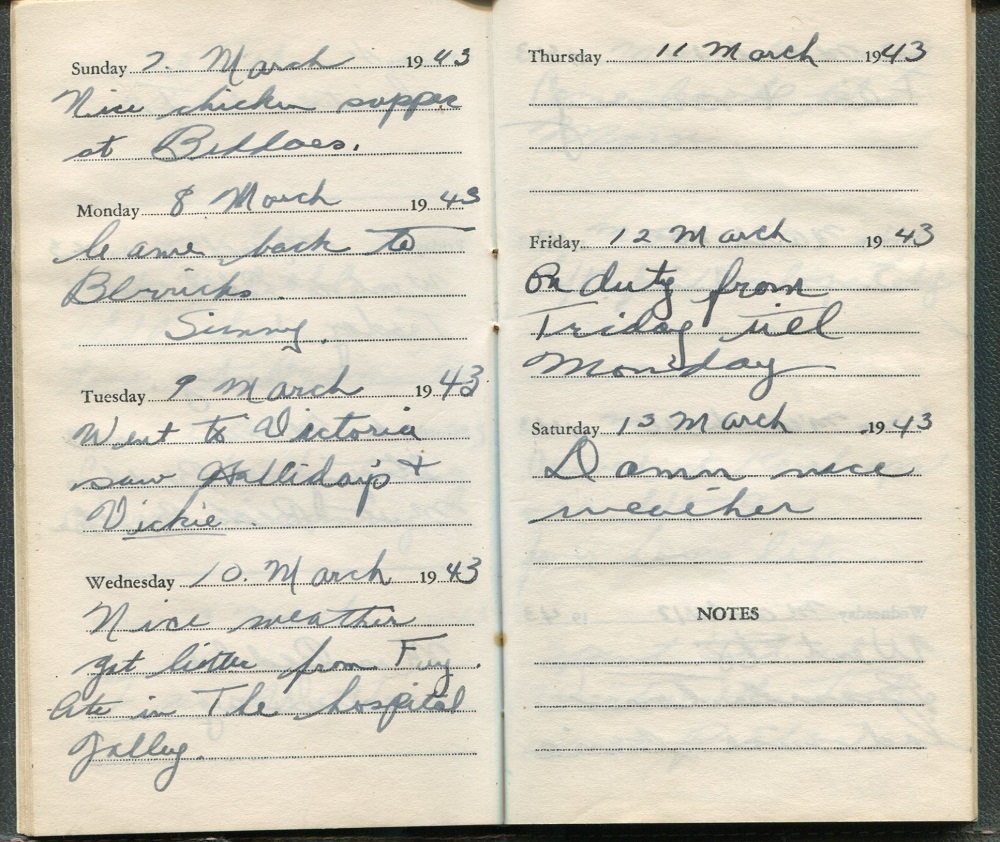 Sunday 7. March 1943
Nice chicken supper
at
Monday 8 March 1943
Came back to
Sunny.
Tuesday 9 March 1943
Went to Victoria
saw Halliday's +
Vickie.
Wednesday 10. March 1943
Nice weather
got letter from
Ate in The hospital
galley.
Thursday 11 March 1943
Friday 12 March 1943
On duty from
Friday till
Monday
Saturday 13 March 1943
Damn nice
weather
NOTES